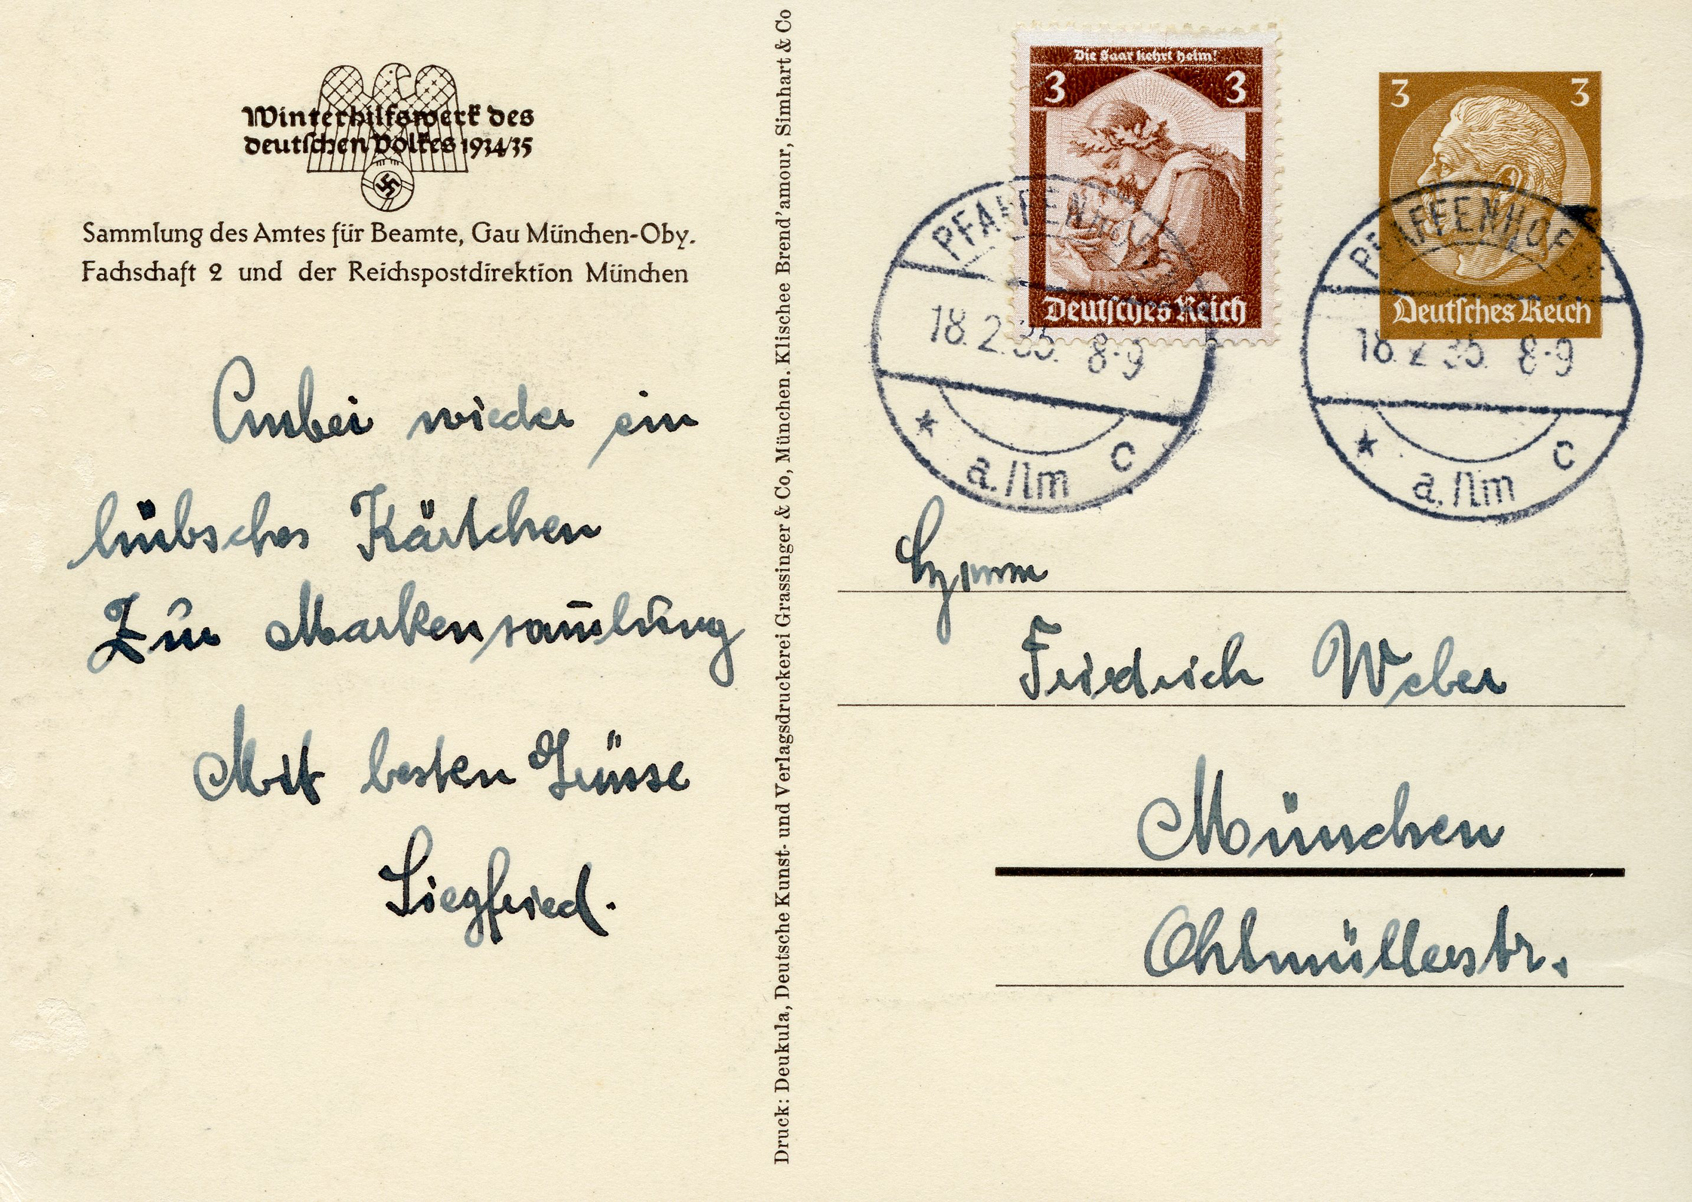 Winterhilfswerk des
deutschen Volkes 1934/35
Sammlung des Amtes für Beamte, Gau München-Oby.
Fachschaft 2 und der Reichspostdirektion München
Anbei wieder ein
hübsches Kärtchen
Zur Markensam̄lung
Mit besten Grüsse
Siegfried.
Druck: Deukula, Deutsche Kunst- und Verlagsdruckerei Grassinger & Co, München. Klischee Brend'amour, Simhart & Co
Die Saar kehrt heim!
3 3
Deutsches Reich
PFAFFENHOFEN
18.2.35. 8-9
a./Ilm c
3 3
Deutsches Reich
PFAFFENHOFEN
18.2.35. 8-9
a./Ilm c
Friedrich Weber
München
Ohlmüllerstr.